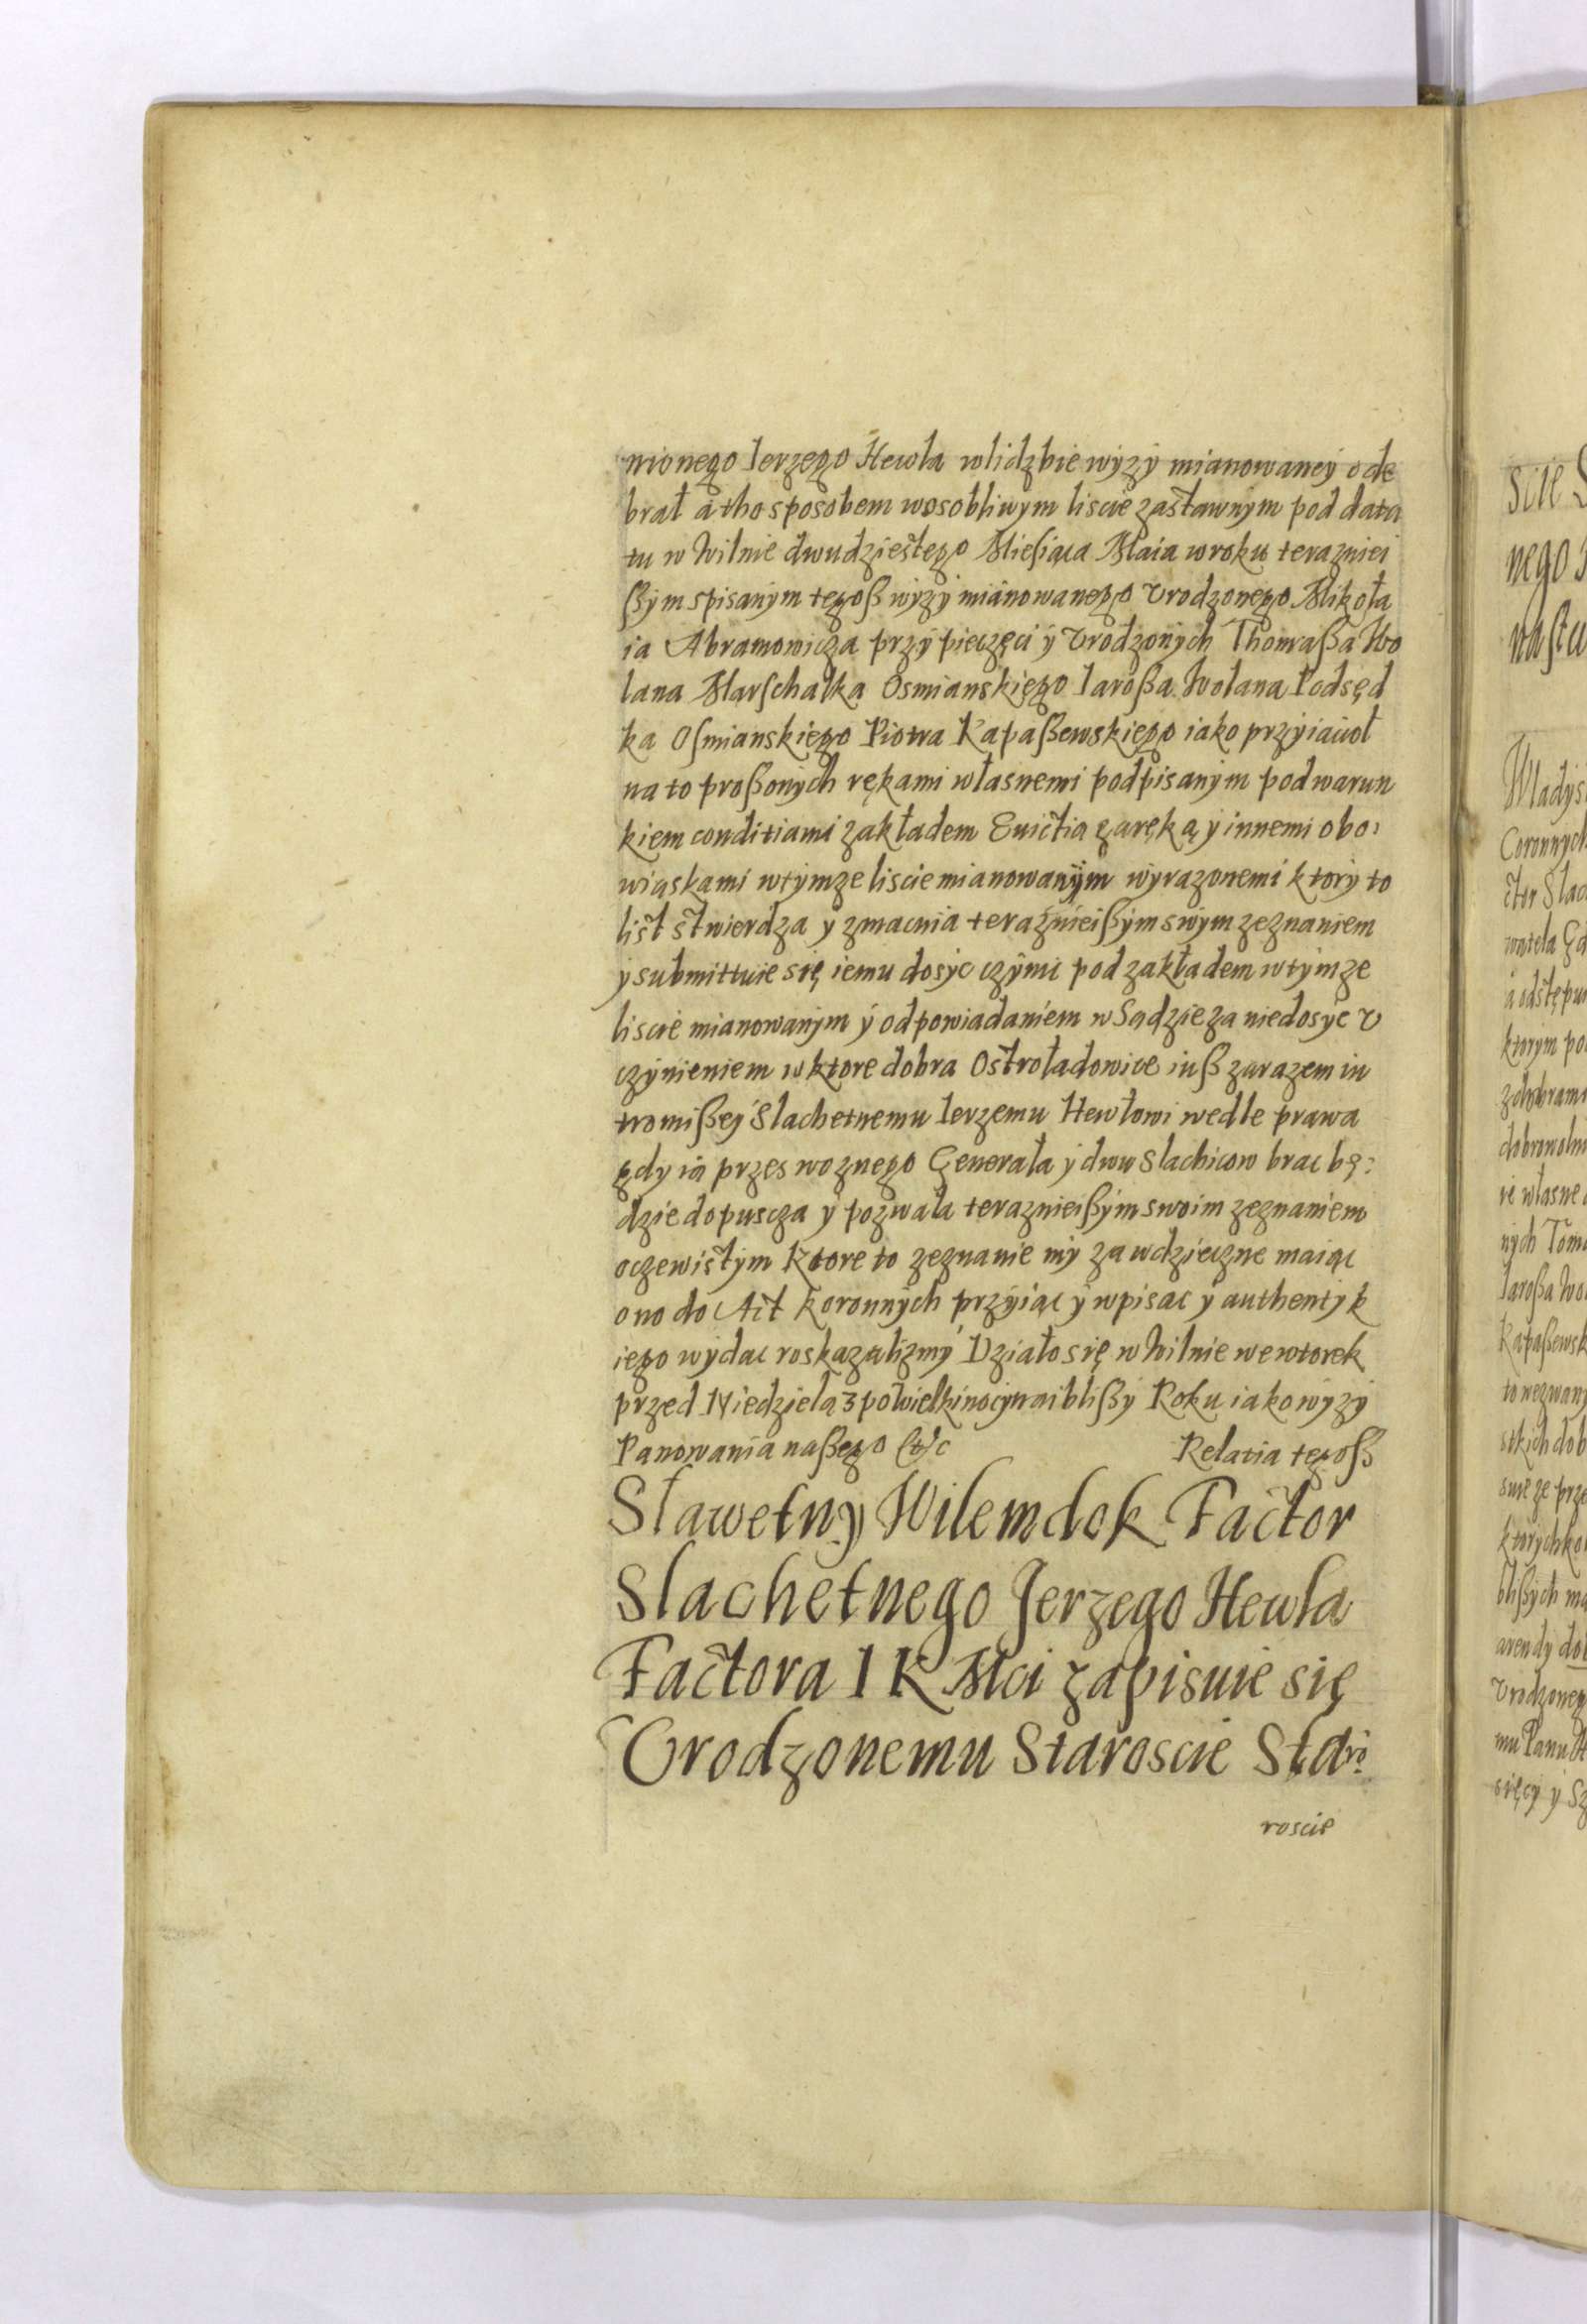 nionego Ierzego Hewla wlidzbie wyzÿ mianowaneÿ ode
brał a tho sposobem wosobliwym liscie zastawnÿm pod data
tu w Wilnie dwudziestego Miesiąca Maia w roku terazniei
ßÿm spisanÿm tegoß wÿzÿ mianowanego Vrodzonego Mikoła
ia Abramowicza przÿ pieczęci ÿ Vrodzonÿch Thomaßa Wo
lana Marschałka Osmianskiego Iaroßa Wolana Podsęd
ka Osmianskiego Piotra Kapaßewskiego iako przÿiaciol
na to proßonÿch rękami własnemi podpisanÿm pod warun
kiem conditiami zakładem Evictią zaręką ÿ innemi obo:
wiąskami wtÿmze liscie mianowanÿm wÿrazonemi ktorÿ to
list stwierdza ÿ zmacnia terazniei­ßÿm swÿm zeznaniem
ÿ submittuie się iemu dosÿc czÿnic pod zakładem wtÿmze
liscie mianowanÿm ÿ odpowiadaniem w Sądzie za niedosÿc v
czÿnieniem w ktore dobra Ostroładowice iuß zarazem in
tromißeÿ Slachetnemu Ierzemu Hewłowi wedle prawa
gdy ią przes woznego Generała ÿ dwu Slachicow brac bę:
dzie dopuscza ÿ pozwala teraznieißÿm swoim zeznaniem
oczewistÿm Ktore to zeznanie mÿ za wdzieczne maiąc
ono do Act koronnÿch przÿiąc ÿ wpisac ÿ authentÿk
iego wÿdac roskazalizmÿ Działo się w Wilnie we wtorek
przed Niedzielą 3 po Wielkinocÿ naiblißÿ Roku iako wÿzÿ
Panowania naßego &c Relatia tegoß
Sławetny Wilem dok Factor
Slachetnego Jerzego Hewla
Factora I K Mci zapisuie się
Vrodzonemu Staroscie Staro
roscie
scie
nego
nastu
Wladys
Coronnych
ctor Slac
ktorym po
zdobrami
dobrowoln
ie własne
nÿch Toma
Iaroßa Wo
Kapaßewsk
to wezwanÿ
stkich dob
swe ze prze
ktorÿchkol
blißÿch ma
arendy dob
Vrodzoneg
mu Panu